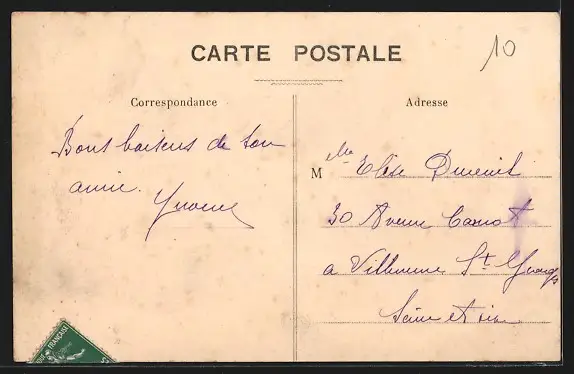 CARTE POSTALE
10
Correspondance
Bons baisers de ton
amie
Yvonne
Adresse
Mlle Elise
30 Avenue Carnot
a Villeneuve St. Georges
Seine et oise
FRANÇAISE